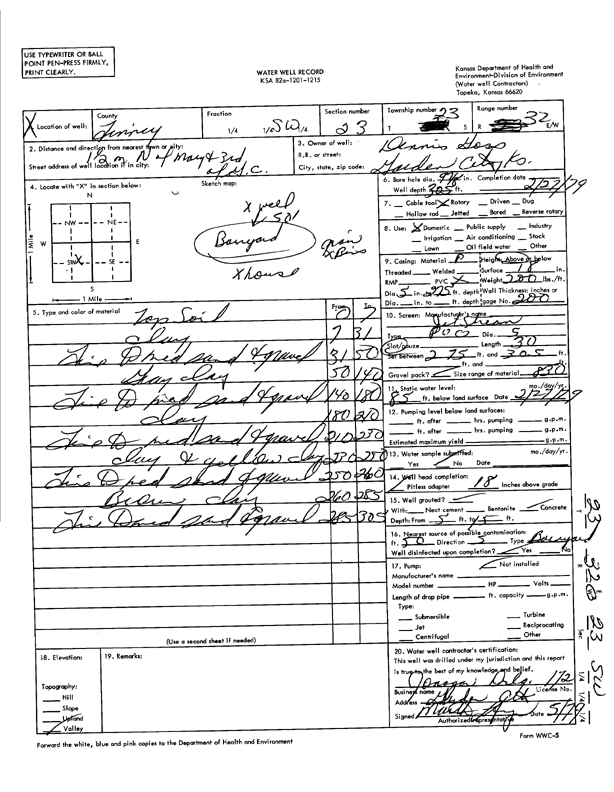 USE TYPEWRITER OR BALL
POINT PEN-PRESS FIRMLY,
PRINT CLEARLY.
WATER WELL RECORD
KSA 82a-1201-1215
Kansas Department of Health and
Environment-Division of Environment
(Water well Contractors)
Topeka, Kansas 66620
X Location of well: County Finney Fraction 1/4 1/4 SW 1/4 Section number 23 Township number 23 T S Range number 32 R E/W
2. Distance and direction from nearest town or city: 1 1/2 m. N of Mary & 3rd
Street address of well location if in city: of G.C.
3. Owner of well: Dennis Goss
R.R. or street:
City, state, zip code: Garden City, Ks.
4. Locate with "X" in section below:
N
NW NE
W E
SW X SE
S
1 Mile
1 Mile
Sketch map:
X well
50'
Barnyard
grain
X Bins
X house
6. Bore hole dia. in. Completion date 2/27/79
Well depth 305 ft.
7. Cable tool X Rotary Driven Dug
Hollow rod Jetted Bored Reverse rotary
8. Use: X Domestic Public supply Industry
Irrigation Air conditioning Stock
Lawn Oil field water Other
9. Casing: Material P Height: Above or below
Threaded Welded Surface 18 in.
RMP PVC X Weight 200 lbs./ft.
Dia. 5 in. to 275 ft. depth Wall Thickness: inches or
Dia. in. to ft. depth gage No. 200
5. Type and color of material From To
Top Soil 0 7
Clay 7 31
Fine to med sand & gravel 31 50
Gray clay 50 140
Fine to med sand & gravel 140 180
Clay 180 210
Fine to med sand & gravel 210 230
Clay & yellow clay 230 250
Fine to med sand & gravel 250 260
Brown clay 260 285
Fine to med sand & gravel 285 305
(Use a second sheet if needed)
10. Screen: Manufacturer's name
Jet Stream
Type PVC Dia. 5
Slot/gauze Length 30
Set between 275 ft. and 305 ft.
ft. and ft.
Gravel pack? Size range of material 830
11. Static water level: mo./day/yr.
85 ft. below land surface Date 2/27/79
12. Pumping level below land surfaces:
ft. after hrs. pumping g.p.m.
ft. after hrs. pumping g.p.m.
Estimated maximum yield g.p.m.
13. Water sample submitted: mo./day/yr.
Yes No Date
14. Well head completion:
Pitless adapter 18 Inches above grade
15. Well grouted?
With: Neat cement Bentonite Concrete
Depth: From 5 ft. to 15 ft.
16. Nearest source of possible contamination:
ft. 50 Direction S Type Barnyard
Well disinfected upon completion? Yes No
17. Pump: Not installed
Manufacturer's name
Model number HP Volts
Length of drop pipe ft. capacity g.p.m.
Type:
Submersible Turbine
Jet Reciprocating
Centrifugal Other
18. Elevation:
Topography:
Hill
Slope
Upland
Valley
19. Remarks:
20. Water well contractor's certification:
This well was drilled under my jurisdiction and this report
is true to the best of my knowledge and belief.
Drlg. 172
Business name License No.
Address
Signed Date 5/79
Authorized representative
23 T 32 R E W 23 Sec SW 1/4 1/4 1/4
Forward the white, blue and pink copies to the Department of Health and Environment
Form WWC-5